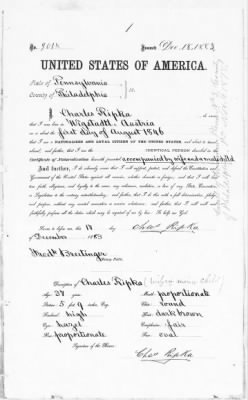 1
No. 9018. Issued Dec. 18, 1883
UNITED STATES OF AMERICA.
State of Pennsylvania
County of Philadelphia ss:
I Charles Ripka do swear
that I was born in Wigstadtl Austria
on or about the first day of August 1846
that I am a NATURALIZED AND LOYAL CITIZEN OF THE UNITED STATES, and about to travel
abroad; and further, that I am the IDENTICAL PERSON described in the
Certificate of Naturalization herewith presented accompanied by wife and a male child
And further, I do solemnly swear that I will support, protect, and defend the Constitution and
Government of the United States against all enemies, whether domestic or foreign; and that I will bear
true faith, allegiance, and loyalty to the same, any ordinance, resolution, or law of any State, Convention
or Legislature to the contrary notwithstanding; and further, that I do this with a full determination, pledge,
and purpose, without any mental reservation or evasion whatsoever; and further, that I will well and
faithfully perform all the duties which may be required of me by law: So help me God.
Sworn to before me, this 17
Chas Ripka
December 1883
Fredk Breitinger
Notary Public.
Description of Charles Ripka
Age: 37 years
Mouth: proportionate
Stature: 5 feet 9 inches, Eng.
Chin: round
Forehead: high
Hair: dark brown
Eyes: hazel
Complexion: fair
Nose: proportionate
Face: oval
Signature of the Bearer.
Chas Ripka